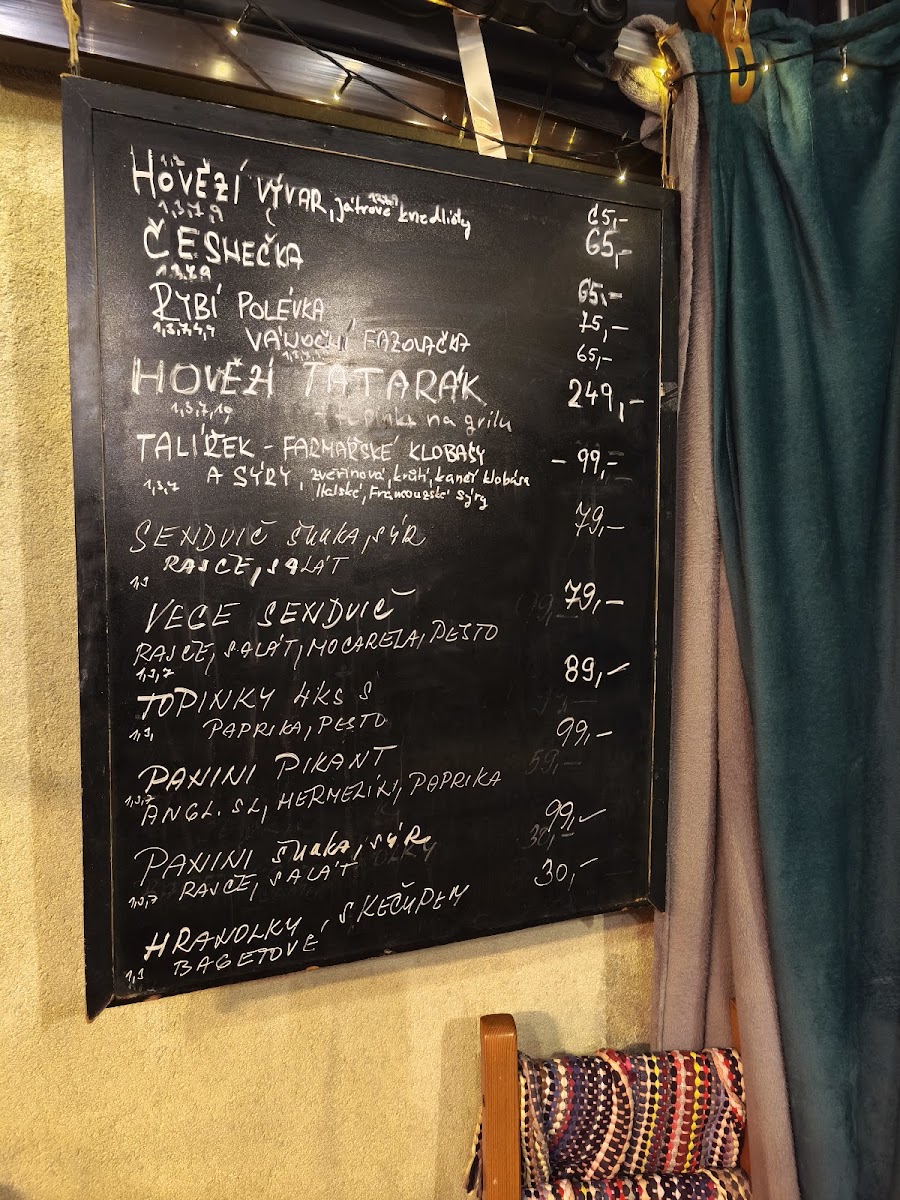 HOVĚZÍ VÝVAR, játrové knedlíčky
1,3,7,9 65,-
ČESNEČKA 65,-
RYBÍ POLÉVKA 65,-
75,-
VÁNOČNÍ FAZOLAČKA 65,-
HOVĚZÍ TATARÁK 249,-
- topinka na grilu
TALÍŘEK - FARMÁŘSKÉ KLOBÁSY - 99,-
A SÝRY, zvěřinová, krůtí, kančí klobása
1,3,7 Italské, Francouzské sýry
SENDVIČ ŠUNKA, SÝR 79,-
RAJČE, SALÁT
VEGE SENDVIČ 79,-
RAJČE, SALÁT, MOCARELA, PESTO
1,3,7
TOPINKY 4KS S 89,-
PAPRIKA, PESTO
PANINI PIKANT 99,-
1,3,7 ANGL. SL, HERMELÍN, PAPRIKA
PANINI ŠUNKA, SÝR 99,-
RAJČE, SALÁT
HRANOLKY, S KEČUPEM 30,-
BAGETOVÉ